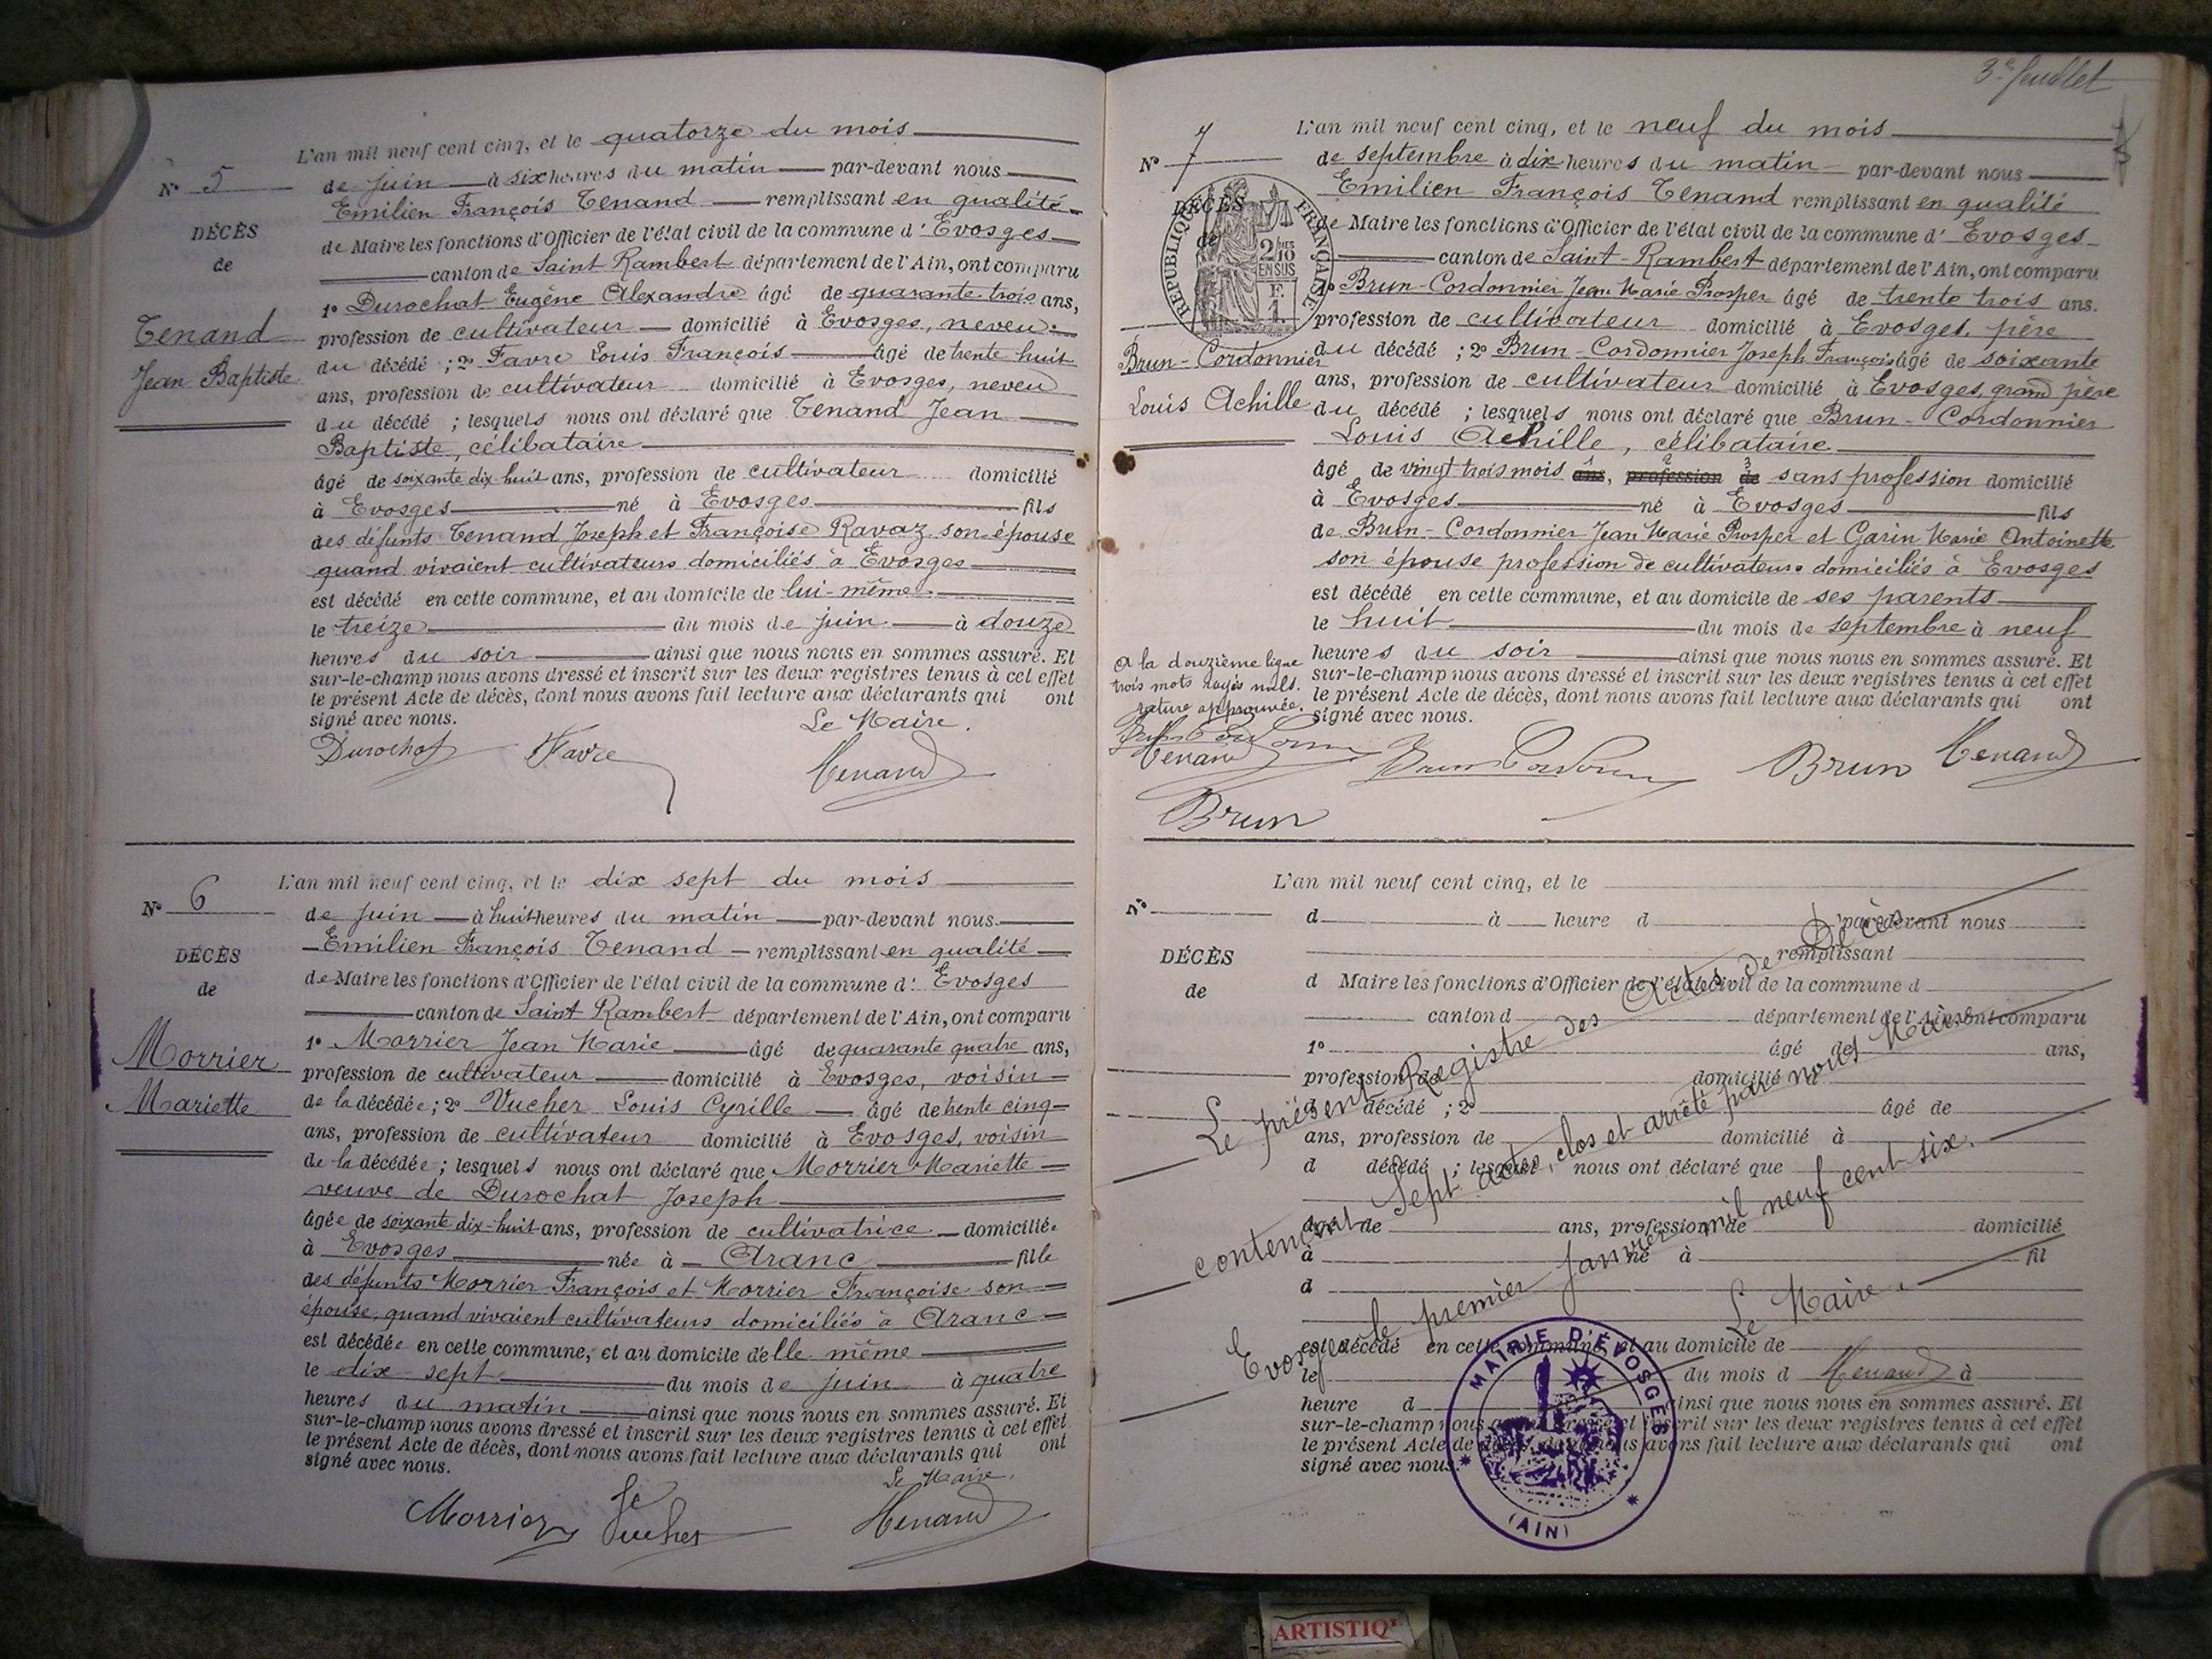 L'an mil neuf cent cinq, et le quatorze du mois
N° 5
de juin à six heures du matin par-devant nous
Emilien François Tenand remplissant en qualité
DÉCÈS
de
de Maire les fonctions d'Officier de l'état civil de la commune d'Evosges
canton de Saint Rambert département de l'Ain, ont comparu
1° Durochat Eugène Alexandre âgé de quarante trois ans,
Tenand
Jean Baptiste
profession de cultivateur domicilié à Evosges, neveu
du décédé ; 2° Favre Louis François âgé de trente huit
ans, profession de cultivateur domicilié à Evosges, neveu
du décédé ; lesquels nous ont déclaré que Tenand Jean
Baptiste, célibataire
âgé de soixante dix huit ans, profession de cultivateur domicilié
à Evosges né à Evosges fils
des défunts Tenand Joseph et Françoise Ravaz son épouse
quand vivaient cultivateurs domiciliés à Evosges
est décédé en cette commune, et au domicile de lui-même
le treize du mois de juin à douze
heures du soir ainsi que nous nous en sommes assuré. Et
sur-le-champ nous avons dressé et inscrit sur les deux registres tenus à cet effet
le présent Acte de décès, dont nous avons fait lecture aux déclarants qui ont
signé avec nous.
Le Maire.
Durochat Favre Tenand
L'an mil neuf cent cinq, et le dix sept du mois
N° 6
de juin à huit heures du matin par-devant nous
Emilien François Tenand remplissant en qualité
DÉCÈS
de
de Maire les fonctions d'Officier de l'état civil de la commune d'Evosges
canton de Saint Rambert département de l'Ain, ont comparu
Morrier
Mariette
1° Morrier Jean Marie âgé de quarante quatre ans,
profession de cultivateur domicilié à Evosges, voisin
de la décédée ; 2° Vucher Louis Cyrille âgé de trente cinq
ans, profession de cultivateur domicilié à Evosges, voisin
de la décédée ; lesquels nous ont déclaré que Morrier Mariette
veuve de Durochat Joseph
âgée de soixante dix-huit ans, profession de cultivatrice domiciliée
à Evosges née à Aranc fille
des défunts Morrier François et Morrier Françoise son
épouse, quand vivaient cultivateurs domiciliés à Aranc
est décédée en cette commune, et au domicile d'elle même
le dix-sept du mois de juin à quatre
heures du matin ainsi que nous nous en sommes assuré. Et
sur-le-champ nous avons dressé et inscrit sur les deux registres tenus à cet effet
le présent Acte de décès, dont nous avons fait lecture aux déclarants qui ont
signé avec nous.
Le Maire.
Morrier Vucher Tenand
3e feuillet
L'an mil neuf cent cinq, et le neuf du mois
N° 7
de septembre à dix heures du matin par-devant nous
Emilien François Tenand remplissant en qualité
DÉCÈS
de
RÉPUBLIQUE FRANÇAISE
2/10 MES
EN SUS
F.
1.
de Maire les fonctions d'Officier de l'état civil de la commune d'Evosges
canton de Saint-Rambert département de l'Ain, ont comparu
1° Brun-Cordonnier Jean Marie Prosper âgé de trente trois ans.
profession de cultivateur domicilié à Evosges, père
Brun-Cordonnier
Louis Achille
du décédé ; 2° Brun-Cordonnier Joseph François âgé de soixante
ans, profession de cultivateur domicilié à Evosges, grand père
du décédé ; lesquels nous ont déclaré que Brun-Cordonnier
Louis Achille, célibataire
1 2 3
âgé de vingt trois mois ans, profession de sans profession domicilié
à Evosges né à Evosges fils
de Brun-Cordonnier Jean Marie Prosper et Garin Marie Antoinette
son épouse profession de cultivateurs domiciliés à Evosges
est décédé en cette commune, et au domicile de ses parents
le huit du mois de septembre à neuf
heures du soir ainsi que nous nous en sommes assuré. Et
sur-le-champ nous avons dressé et inscrit sur les deux registres tenus à cet effet
le présent Acte de décès, dont nous avons fait lecture aux déclarants qui ont
signé avec nous.
A la douzième ligne
trois mots rayés nuls.
rature approuvée.
Tenand
Brun Cordonnier Brun Tenand
Brun
L'an mil neuf cent cinq, et le
N°
d à heure d par-devant nous
remplissant
DÉCÈS
de
d Maire les fonctions d'Officier de l'état civil de la commune d
canton d département de l'Ain, ont comparu
1° âgé de ans,
profession de domicilié à
d décédé ; 2° âgé de
ans, profession de domicilié à
d décédé ; lesquels nous ont déclaré que
âgé de ans, profession de domicilié
à né à fil
d
est décédé en cette commune, et au domicile de
le du mois d à
heure d ainsi que nous nous en sommes assuré. Et
sur-le-champ nous avons dressé et inscrit sur les deux registres tenus à cet effet
le présent Acte de décès, dont nous avons fait lecture aux déclarants qui ont
signé avec nous.
Le présent Registre des Actes de Décès
contenant Sept actes, clos et arrêté par nous Maire
Evosges le premier Janvier mil neuf cent six.
Le Maire.
Tenand
MAIRIE D'ÉVOSGES
(AIN)
ARTISTIQ